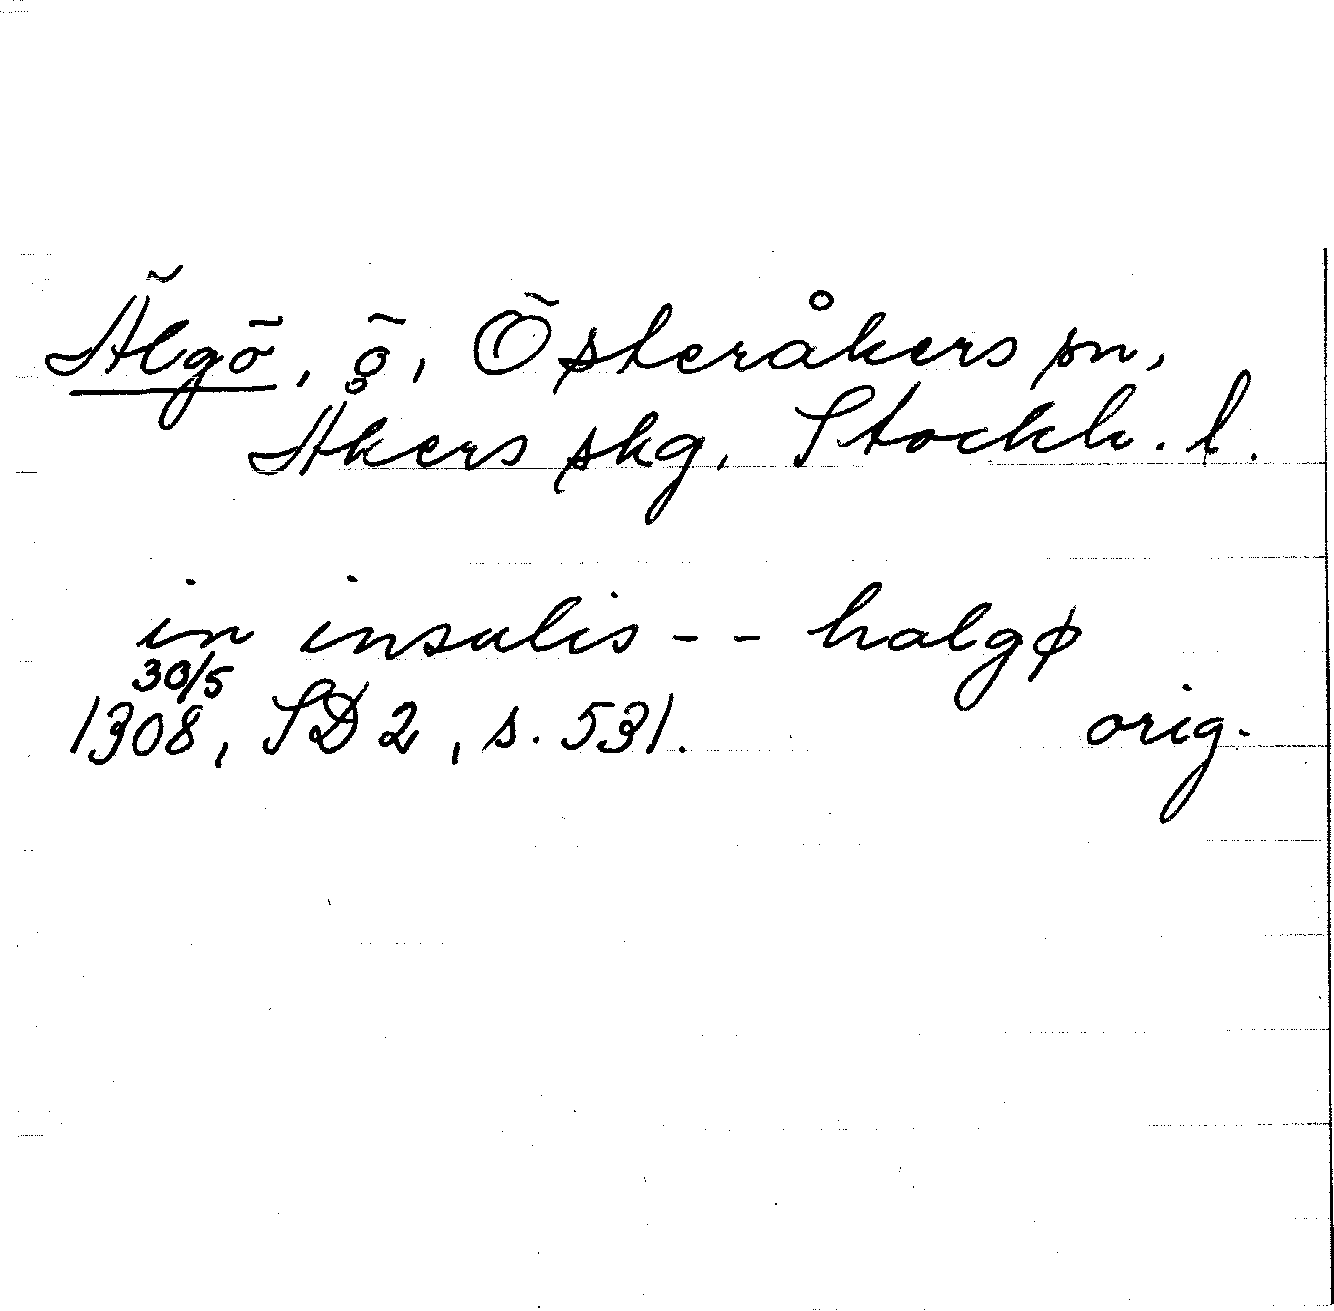 Älgö, ö, Österåkers sn,
Åkers skg, Stockh. l.
in insulis - - halgø
30/5
1308, SD 2, s. 531. orig.